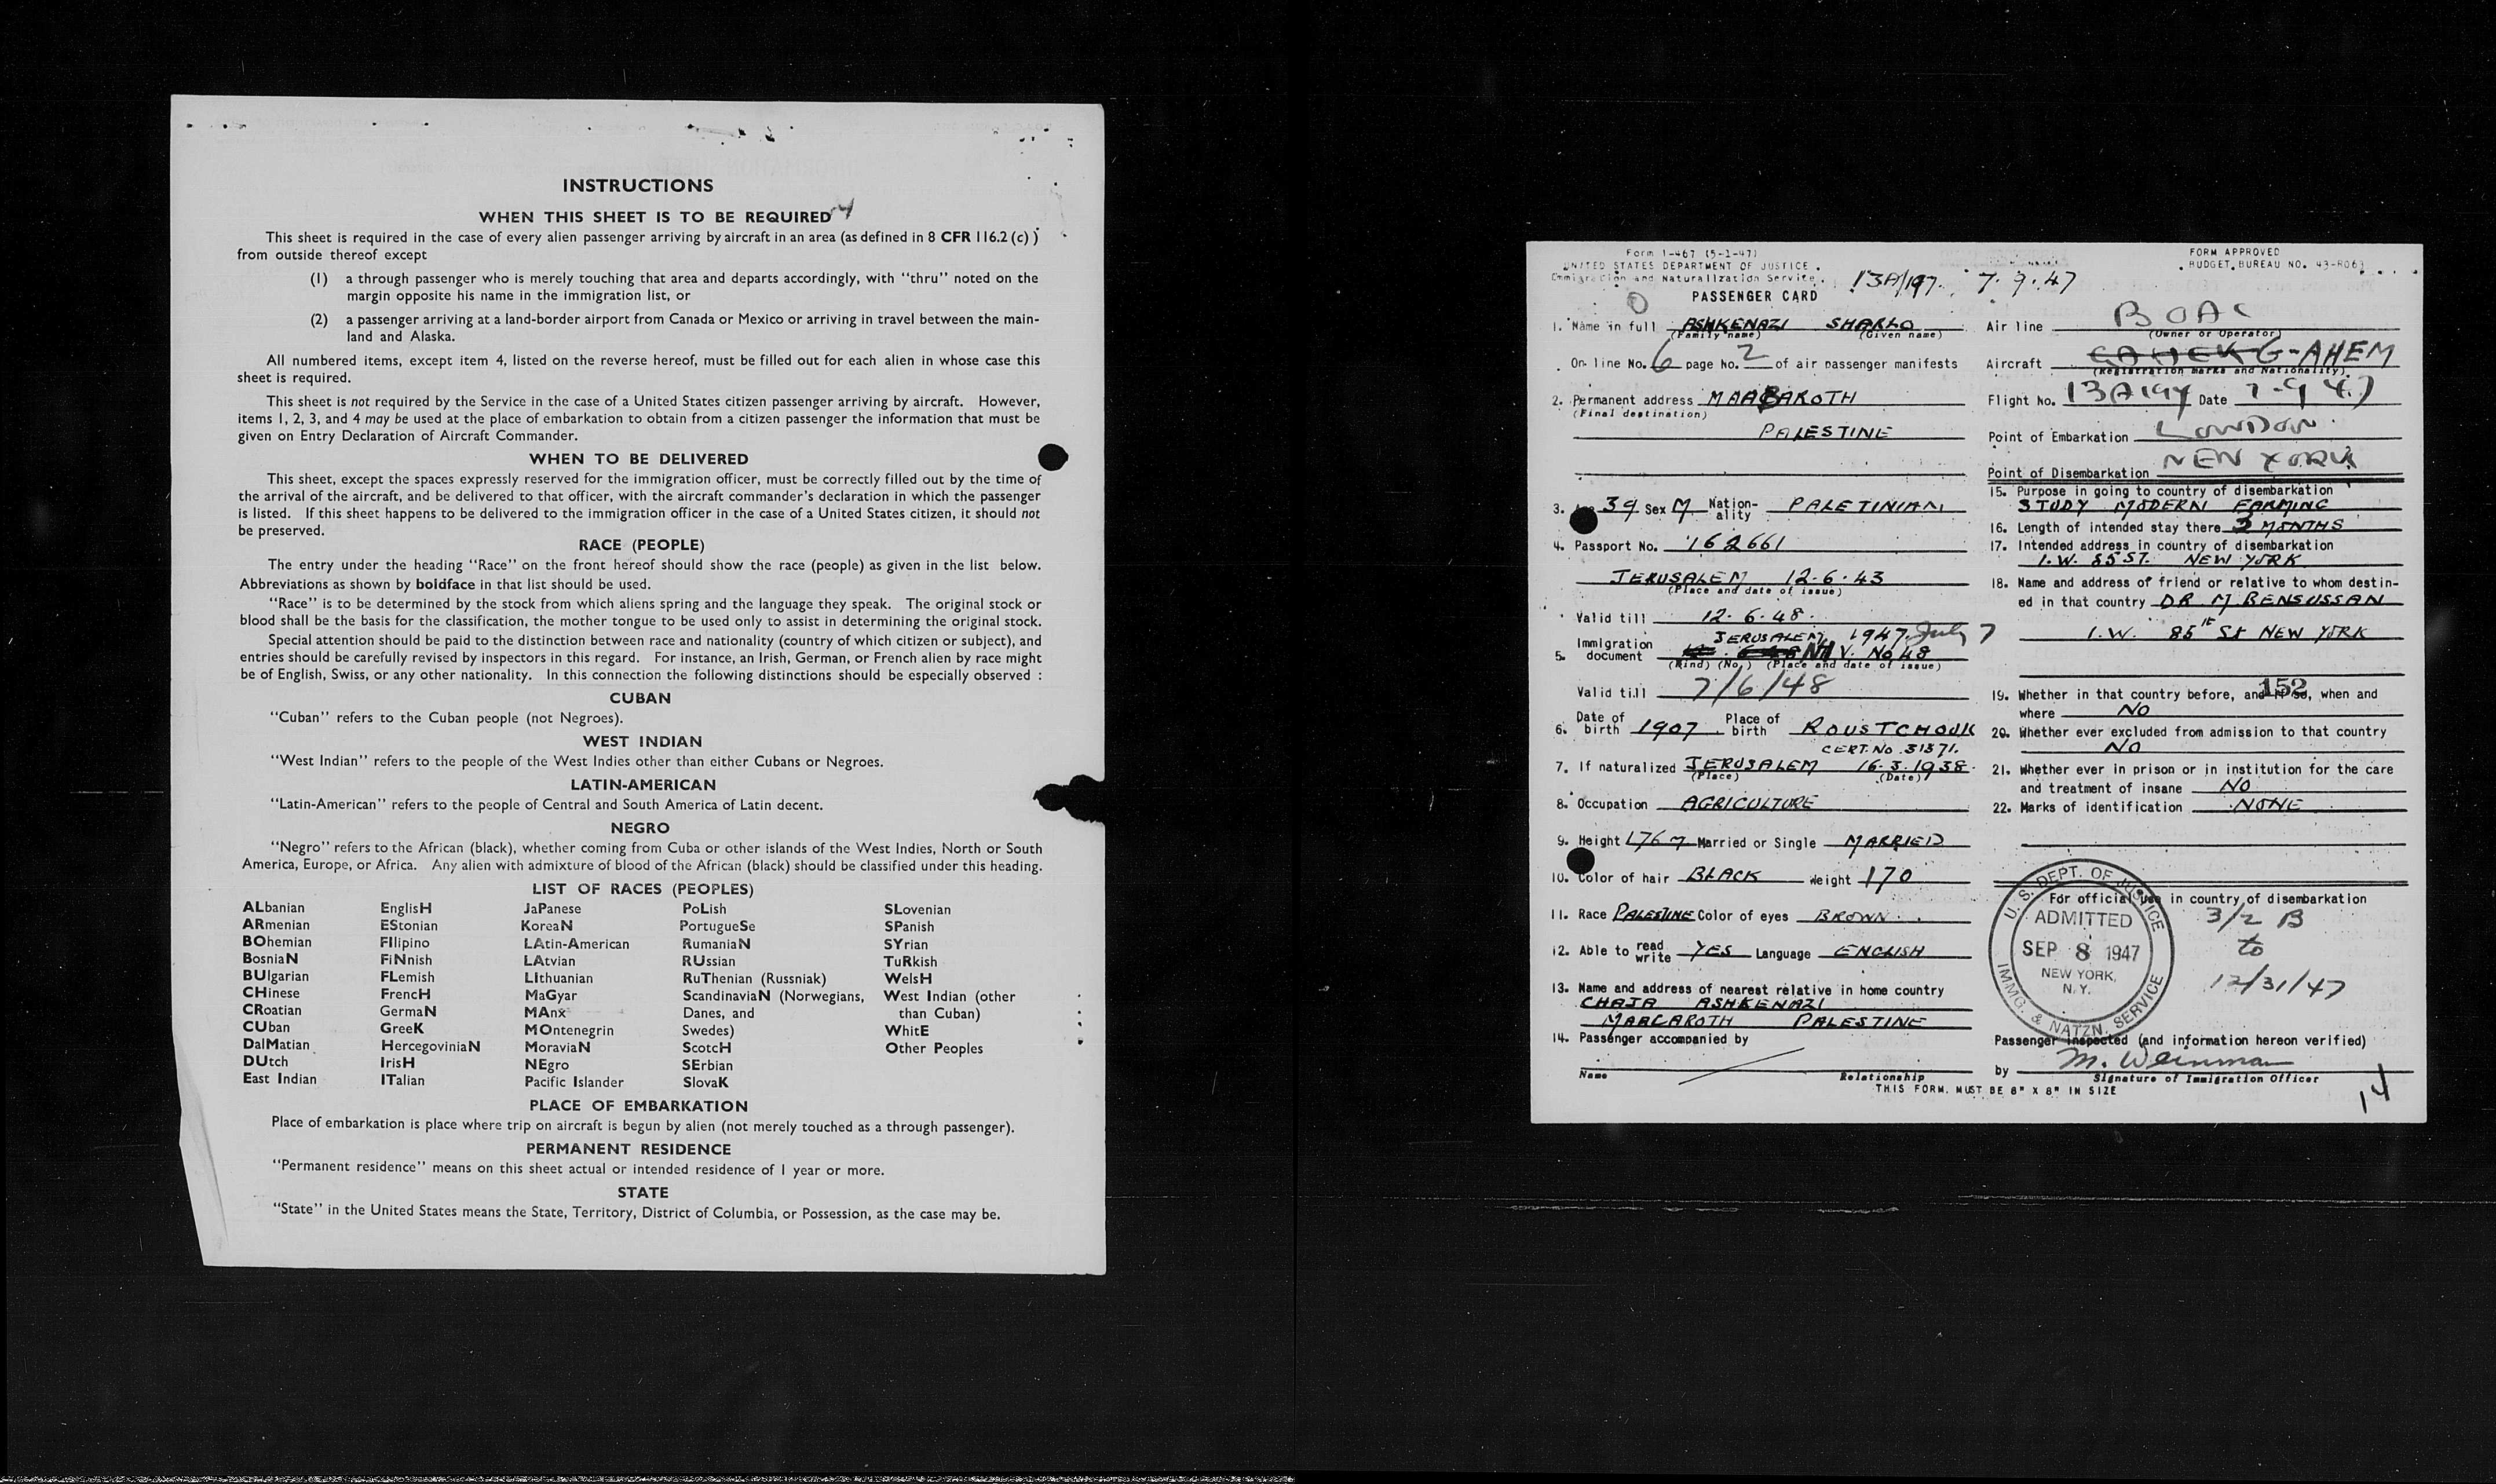 INSTRUCTIONS
WHEN THIS SHEET IS TO BE REQUIRED
This sheet is required in the case of every alien passenger arriving by aircraft in an area (as defined in 8 CFR 116.2 (c) )
from outside thereof except
(1) a through passenger who is merely touching that area and departs accordingly, with “thru” noted on the
margin opposite his name in the immigration list, or
(2) a passenger arriving at a land-border airport from Canada or Mexico or arriving in travel between the main-
land and Alaska.
All numbered items, except item 4, listed on the reverse hereof, must be filled out for each alien in whose case this
sheet is required.
This sheet is not required by the Service in the case of a United States citizen passenger arriving by aircraft. However,
items 1, 2, 3, and 4 may be used at the place of embarkation to obtain from a citizen passenger the information that must be
given on Entry Declaration of Aircraft Commander.
WHEN TO BE DELIVERED
This sheet, except the spaces expressly reserved for the immigration officer, must be correctly filled out by the time of
the arrival of the aircraft, and be delivered to that officer, with the aircraft commander’s declaration in which the passenger
is listed. If this sheet happens to be delivered to the immigration officer in the case of a United States citizen, it should not
be preserved.
RACE (PEOPLE)
The entry under the heading “Race” on the front hereof should show the race (people) as given in the list below.
Abbreviations as shown by boldface in that list should be used.
“Race” is to be determined by the stock from which aliens spring and the language they speak. The original stock or
blood shall be the basis for the classification, the mother tongue to be used only to assist in determining the original stock.
Special attention should be paid to the distinction between race and nationality (country of which citizen or subject), and
entries should be carefully revised by inspectors in this regard. For instance, an Irish, German, or French alien by race might
be of English, Swiss, or any other nationality. In this connection the following distinctions should be especially observed :
CUBAN
“Cuban” refers to the Cuban people (not Negroes).
WEST INDIAN
“West Indian” refers to the people of the West Indies other than either Cubans or Negroes.
LATIN-AMERICAN
“Latin-American” refers to the people of Central and South America of Latin decent.
NEGRO
“Negro” refers to the African (black), whether coming from Cuba or other islands of the West Indies, North or South
America, Europe, or Africa. Any alien with admixture of blood of the African (black) should be classified under this heading.
LIST OF RACES (PEOPLES)
ALbanian EnglisH JaPanese PoLish SLovenian
ARmenian EStonian KoreaN PortugueSe SPanish
BOhemian FIlipino LAtin-American RumaniaN SYrian
BosniaN FiNnish LAtvian RUssian TuRkish
BUlgarian FLemish LIthuanian RuThenian (Russniak) WelsH
CHinese FrencH MaGyar ScandinaviaN (Norwegians, West Indian (other
CRoatian GermaN MAnx Danes, and than Cuban)
CUban GreeK MOntenegrin Swedes) WhitE
DalMatian HercegoviniaN MoraviaN ScotcH Other Peoples
DUtch IrisH NEgro SErbian
East Indian ITalian Pacific Islander SlovaK
PLACE OF EMBARKATION
Place of embarkation is place where trip on aircraft is begun by alien (not merely touched as a through passenger).
PERMANENT RESIDENCE
“Permanent residence” means on this sheet actual or intended residence of 1 year or more.
STATE
“State” in the United States means the State, Territory, District of Columbia, or Possession, as the case may be.
Form I-467 (5-1-47)
UNITED STATES DEPARTMENT OF JUSTICE
Immigration and Naturalization Service
13A/197. 7.9.47
PASSENGER CARD
1. Name in full ASHKENAZI SHARLO
(Family name) (Given name)
On line No. 6 page No. 2 of air passenger manifests
2. Permanent address MAABAROTH
(Final destination)
PALESTINE
3. 39 Sex M Nation-ality PALETINIAN
4. Passport No. 162661
JERUSALEM 12.6.43
(Place and date of issue)
Valid till 12.6.48.
JERUSALEM 1947 July 7
5. Immigration document V. No 48
(Kind) (No.) (Place and date of issue)
Valid till 7/6/48
6. Date of birth 1907 Place of birth ROUSTCHOUK
CERT. No 31371.
7. If naturalized JERUSALEM 16.3.1938.
(Place) (Date)
8. Occupation AGRICULTURE
9. Height 176 m Married or Single MARRIED
10. Color of hair BLACK Weight 170
11. Race PALESTINE Color of eyes BROWN.
12. Able to read write YES Language ENGLISH
13. Name and address of nearest relative in home country
CHAJA ASHKENAZI
MAABAROTH PALESTINE
14. Passenger accompanied by
Name Relationship
THIS FORM MUST BE 8" X 8" IN SIZE
FORM APPROVED
BUDGET BUREAU NO. 43-R063
Air line BOAC
(Owner or Operator)
Aircraft G-AHEM
(Registration marks and Nationality)
Flight No. 13A197 Date 7-9 47
Point of Embarkation LONDON
Point of Disembarkation NEW YORK
15. Purpose in going to country of disembarkation
STUDY MODERN FARMING
16. Length of intended stay there 3 MONTHS
17. Intended address in country of disembarkation
1.W. 85 ST. NEW YORK
18. Name and address of friend or relative to whom destin-
ed in that country DR M. BENSUSSAN
1.W. 85th St NEW YORK
152
19. Whether in that country before, and if so, when and
where NO
20. Whether ever excluded from admission to that country
NO
21. Whether ever in prison or in institution for the care
and treatment of insane NO
22. Marks of identification NONE
For official use in country of disembarkation
U. S. DEPT. OF JUSTICE
ADMITTED
SEP 8 1947
NEW YORK,
N. Y.
IMMG. & NATZN. SERVICE
3/2 B
to
12/31/47
Passenger inspected (and information hereon verified)
by M. Weinman
Signature of Immigration Officer
14